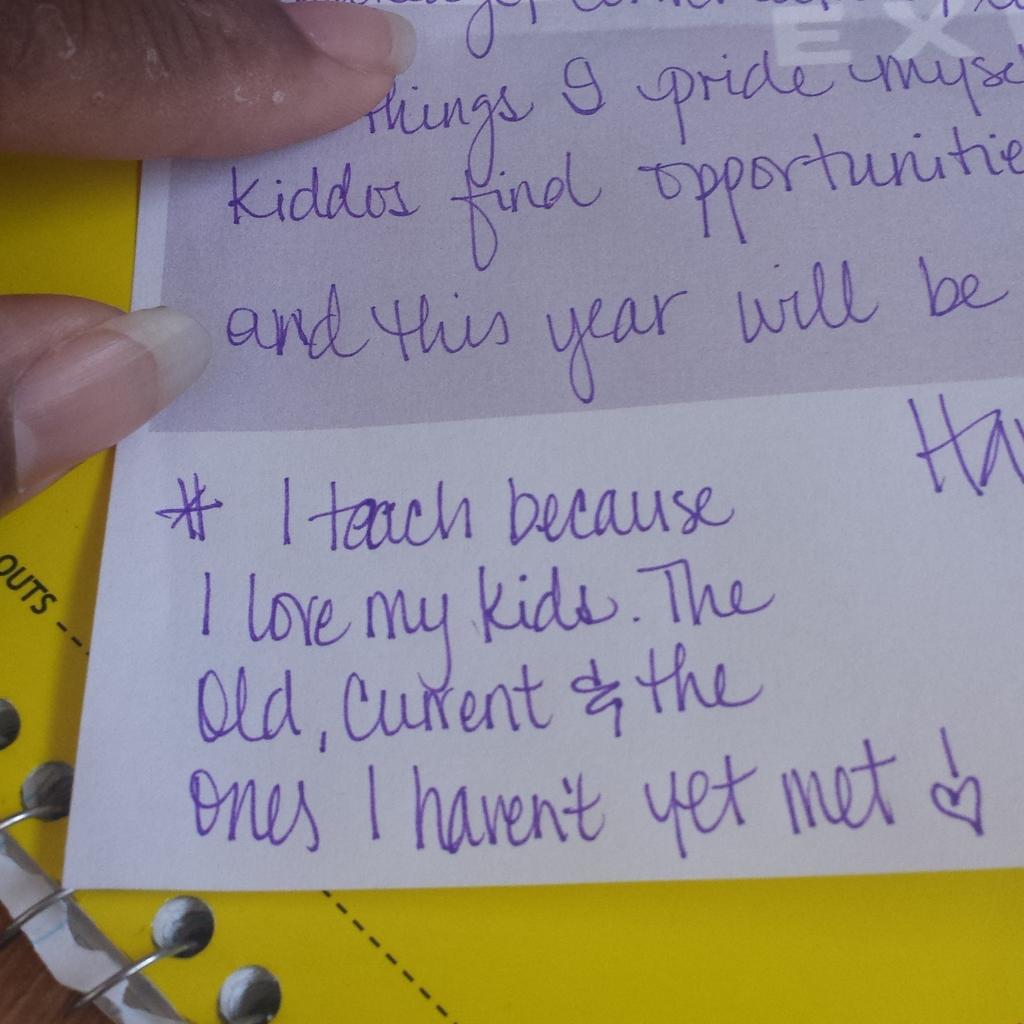 EX
things I pride myse
kiddos find opportunitie
and this year will be
Ha
* I teach because
I love my kids. The
Old, Current & the
ones I haven't yet met !
OUTS